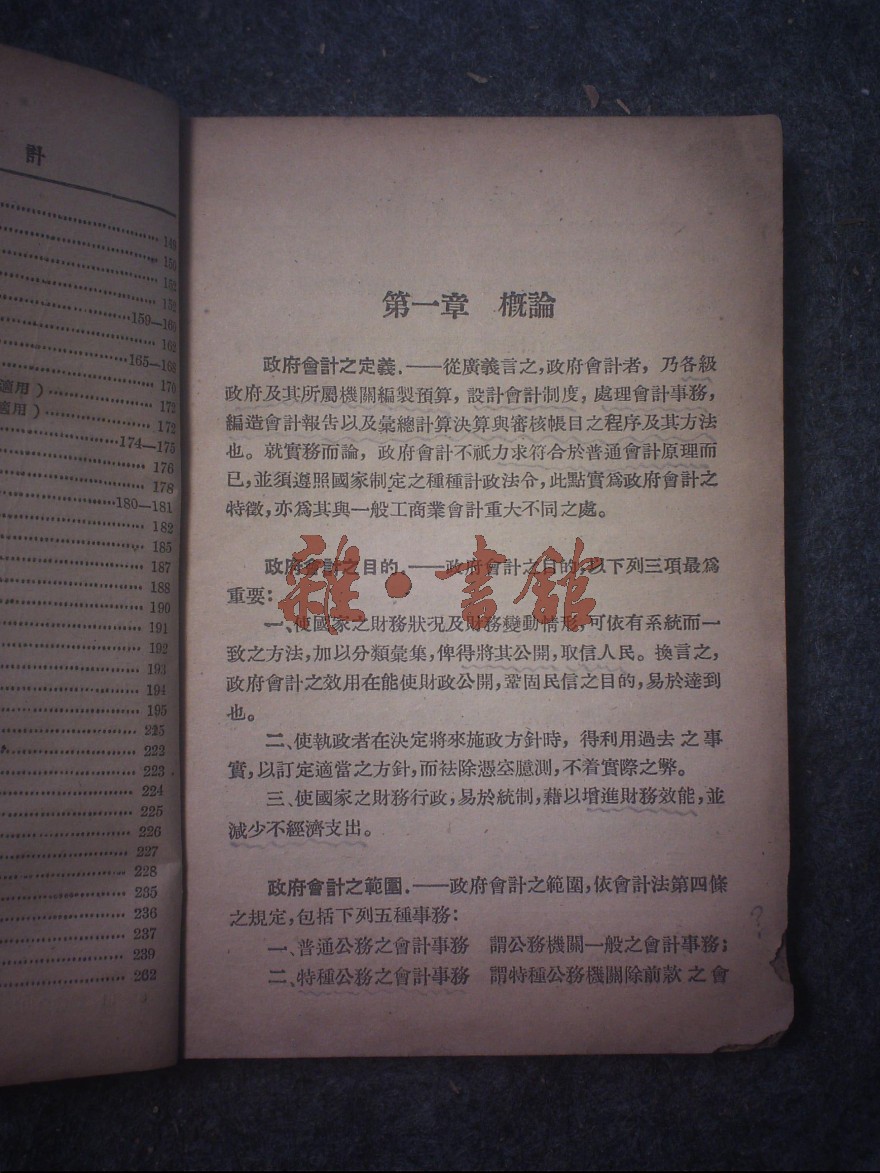 計
149
150
152
152
159—163
162
165—168
170
適用)
172
適用)
172
174—175
176
178
180—181
182
185
187
188
190
191
192
193
194
195
225
222
223
224
225
226
227
228
235
236
237
239
262
第一章 概論
政府會計之定義.——從廣義言之,政府會計者,乃各級
政府及其所屬機關編製預算,設計會計制度,處理會計事務,
編造會計報告以及彙總計算決算與審核帳目之程序及其方法
也。就實務而論,政府會計不祇力求符合於普通會計原理而
已,並須遵照國家制定之種種計政法令,此點實爲政府會計之
特徵,亦爲其與一般工商業會計重大不同之處。
政府會計之目的.——政府會計之目的,以下列三項最爲
重要:
一、使國家之財務狀况及財務變動情形,可依有系統而一
致之方法,加以分類彙集,俾得將其公開,取信人民。換言之,
政府會計之效用在能使財政公開,鞏固民信之目的,易於達到
也。
二、使執政者在決定將來施政方針時,得利用過去之事
實,以訂定適當之方針,而祛除憑空臆測,不着實際之弊。
三、使國家之財務行政,易於統制,藉以增進財務效能,並
減少不經濟支出。
政府會計之範圍.——政府會計之範圍,依會計法第四條
之規定,包括下列五種事務:
一、普通公務之會計事務 謂公務機關一般之會計事務;
二、特種公務之會計事務 謂特種公務機關除前款之會
?
雜·書館